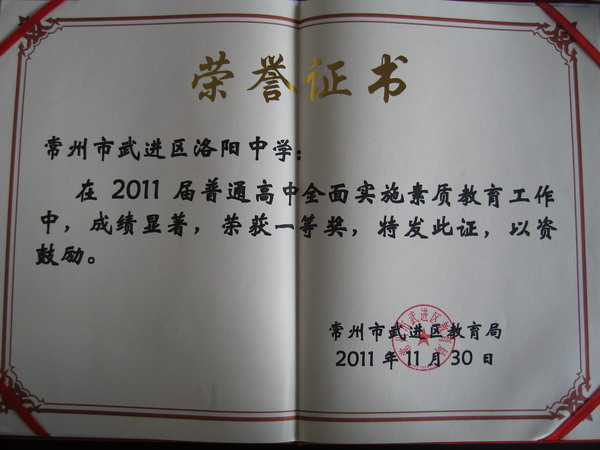 荣誉证书
常州市武进区洛阳中学：
在 2011 届普通高中全面实施素质教育工作
中，成绩显著，荣获一等奖，特发此证，以资
鼓励。
常州市武进区教育局
2011 年 11 月 30 日